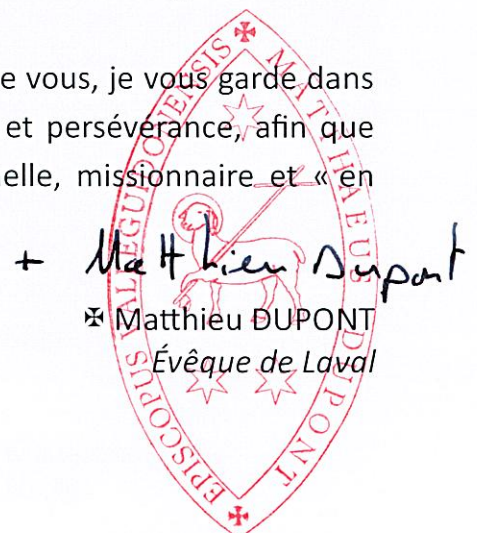 e vous, je vous garde dans
et persévérance, afin que
elle, missionnaire et « en
+ Matthieu Dupont
✠ Matthieu DUPONT
Évêque de Laval
✠ MATTHAEUS DUPONT ✠ EPISCOPUS VALLEGUIDONENSIS